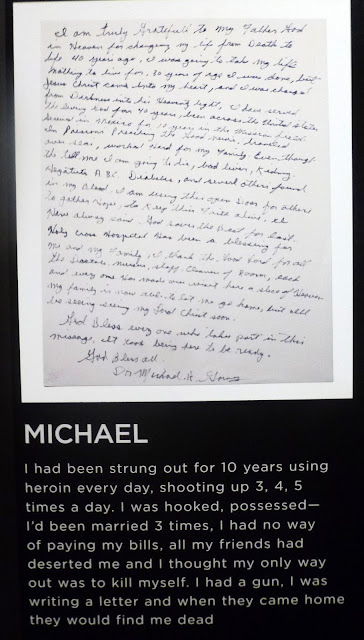 I am truly Gratefull to my Father God
in Heaven for changing my life from Death to
life 40 years ago, I was going to take my life
nothing to live for, 30 years of age I was done, but
Jesus Christ came into my heart, and I was changed
from Darkness into his Heavenly light, I have served
the living God for 40 years, been across the United States
Served in Mexico for 10 years in the Mission
In Prisons Preaching the Good News, traveled
over seas, worked Hard for my Family Even though
the tell me I am going to die, bad liver, Kidney
Hepatitis A B C. Diabetes, and several others found
in my Blood. I am using this open Door for others
to gather Hope, to Keep this Faith alive. 
Have always said. God saves the Best for Last.
Holy Cross Hospital Has been a blessing for
me and my Family, I thank the Good Lord for all
the Doctors, nurses, staff, Cleaner of Rooms, each
and every one Has made our visit here a slice of Heaven
my family is now to let me go home, but all
be seeing my Lord Christ soon.
God Bless every one who takes part in this
message, It took being here to be ready.
God Bless all.
Dr. Michael A.
MICHAEL
I had been strung out for 10 years using
heroin every day, shooting up 3, 4, 5
times a day. I was hooked, possessed—
I'd been married 3 times, I had no way
of paying my bills, all my friends had
deserted me and I thought my only way
out was to kill myself. I had a gun, I was
writing a letter and when they came home
they would find me dead